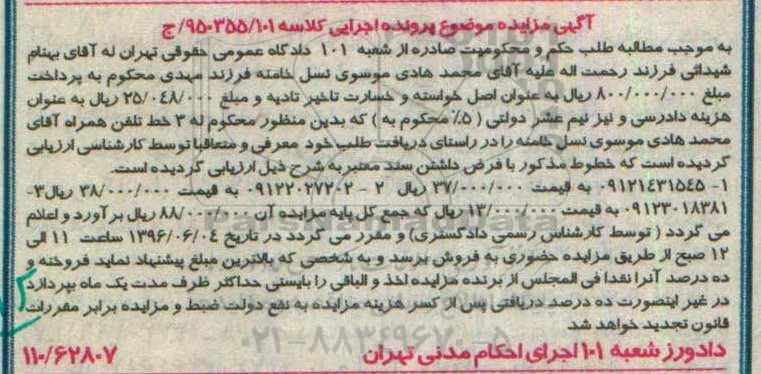 آگهی مزایده موضوع پرونده اجرایی کلاسه ۹۵۰۳۵۵/۱۰۱/ج
به موجب مطالبه طلب حکم و محکومیت صادره از شعبه ۱۰۱ دادگاه عمومی حقوقی تهران له آقای بهنام
شهدائی فرزند رحمت اله علیه آقای محمد هادی موسوی نسل خامنه فرزند مهدی محکوم به پرداخت
مبلغ ۸۰۰/۰۰۰/۰۰۰ ریال به عنوان اصل خواسته و خسارت تاخیر تادیه و مبلغ ۲۵/۰۴۸/۰۰۰ ریال به عنوان
هزینه دادرسی و نیز نیم عشر دولتی (۵٪ محکوم به) که بدین منظور محکوم له ۳ خط تلفن همراه آقای
محمد هادی موسوی نسل خامنه را در راستای دریافت طلب خود معرفی و متعاقبا توسط کارشناسی ارزیابی
گردیده است که خطوط مذکور با فرض داشتن سند معتبر به شرح ذیل ارزیابی گردیده است.
۱- ۰۹۱۲۱۴۳۱۵۴۵ به قیمت ۳۷/۰۰۰/۰۰۰ ریال ۲ - ۰۹۱۲۲۰۲۷۲۰۲ به قیمت ۳۸/۰۰۰/۰۰۰ ریال۳-
۰۹۱۲۳۰۱۸۳۸۱ به قیمت ۱۳/۰۰۰/۰۰۰ ریال که جمع کل پایه مزایده آن ۸۸/۰۰۰/۰۰۰ ریال برآورد و اعلام
می گردد (توسط کارشناس رسمی دادگستری) و مقرر می گردد در تاریخ ۱۳۹۶/۰۶/۰۴ ساعت ۱۱ الی
۱۲ صبح از طریق مزایده حضوری به فروش برسد و به شخصی که بالاترین مبلغ پیشنهاد نماید فروخته و
ده درصد آنرا نقدا فی المجلس از برنده مزایده اخذ و الباقی را بایستی حداکثر ظرف مدت یک ماه بپردازد
در غیر اینصورت ده درصد دریافتی پس از کسر هزینه مزایده به نفع دولت ضبط و مزایده برابر مقررات
قانون تجدید خواهد شد
۰۲۱-۸۸۳۴۹۶۷۰-۵
دادورز شعبه ۱۰۱ اجرای احکام مدنی تهران
۱۱۰/۶۲۸۰۷